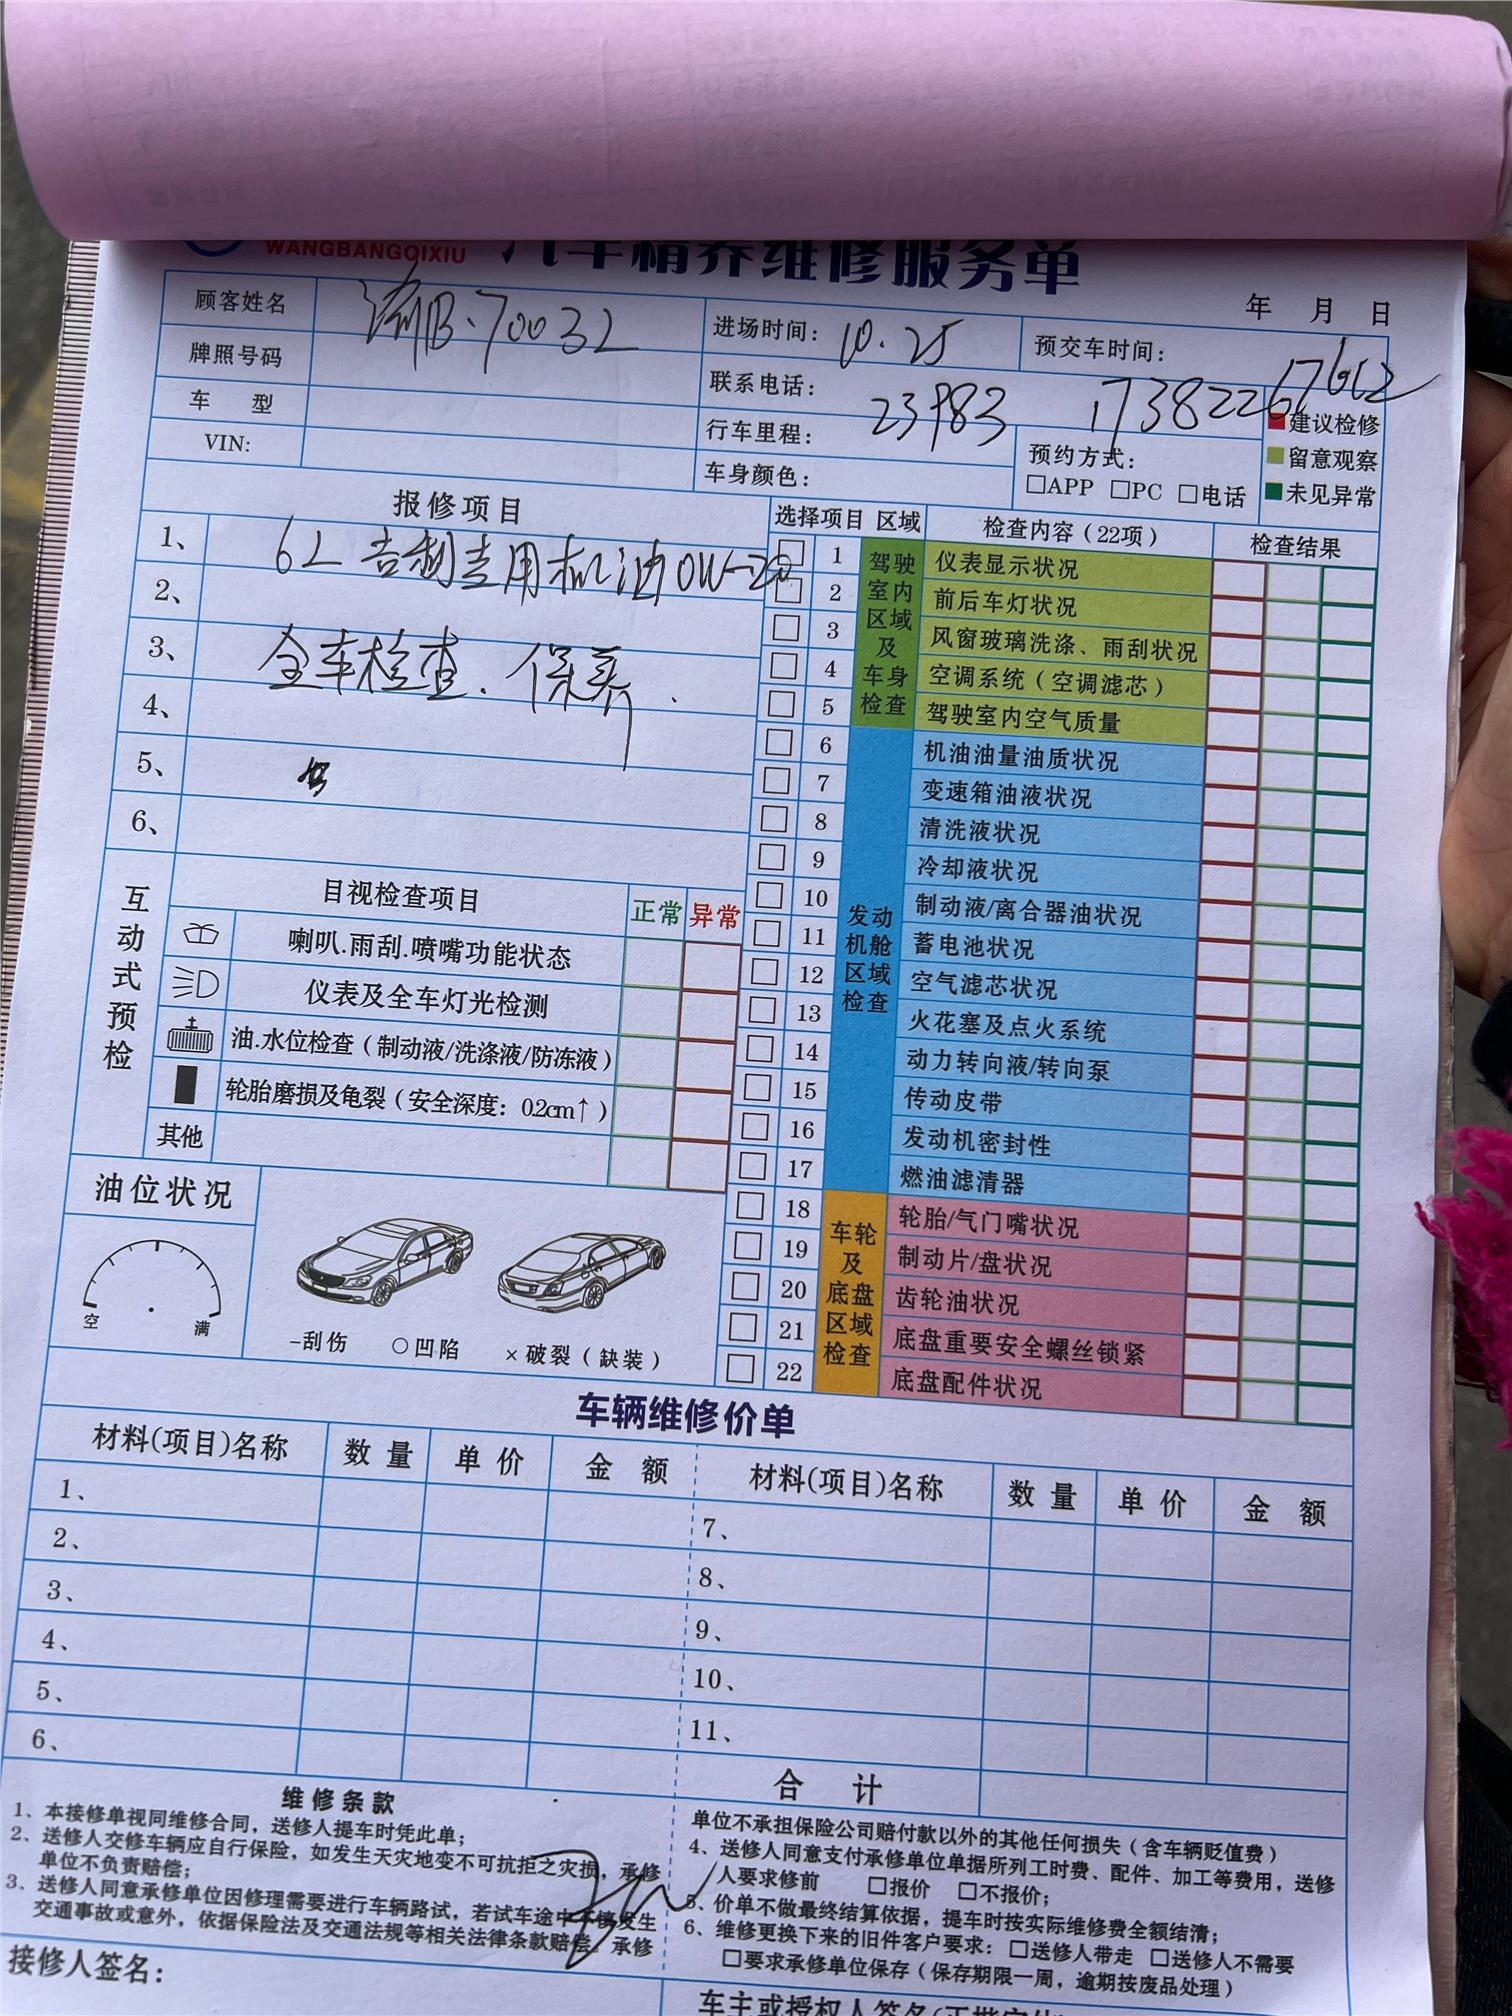 WANGBANGQIXIU 汽车精养维修服务单
年 月 日
顾客姓名
渝B·70032
进场时间: 10.25
预交车时间:
牌照号码
联系电话:
23983
17382267662
车 型
行车里程:
VIN:
车身颜色:
预约方式:
□APP □PC □电话
建议检修
留意观察
未见异常
报修项目
1、 6L 吉利专用机油0W-20
2、
3、 全车检查.保养.
4、
5、
6、
选择项目 区域 检查内容(22项) 检查结果
驾驶室内区域及车身检查
1 仪表显示状况
2 前后车灯状况
3 风窗玻璃洗涤、雨刮状况
4 空调系统(空调滤芯)
5 驾驶室内空气质量
发动机舱区域检查
6 机油油量油质状况
7 变速箱油液状况
8 清洗液状况
9 冷却液状况
10 制动液/离合器油状况
11 蓄电池状况
12 空气滤芯状况
13 火花塞及点火系统
14 动力转向液/转向泵
15 传动皮带
16 发动机密封性
17 燃油滤清器
车轮及底盘区域检查
18 轮胎/气门嘴状况
19 制动片/盘状况
20 齿轮油状况
21 底盘重要安全螺丝锁紧
22 底盘配件状况
互动式预检
目视检查项目 正常 异常
喇叭.雨刮.喷嘴功能状态
仪表及全车灯光检测
油.水位检查(制动液/洗涤液/防冻液)
轮胎磨损及龟裂(安全深度: 0.2cm↑)
其他
油位状况
空 满
-刮伤 ○凹陷 ×破裂(缺装)
车辆维修价单
材料(项目)名称 数量 单价 金额 材料(项目)名称 数量 单价 金额
1、
2、
3、
4、
5、
6、
7、
8、
9、
10、
11、
合 计
维修条款
1、本接修单视同维修合同，送修人提车时凭此单;
2、送修人交修车辆应自行保险，如发生天灾地变不可抗拒之灾损，承修
单位不负责赔偿;
3、送修人同意承修单位因修理需要进行车辆路试，若试车途中不慎发生
交通事故或意外，依据保险法及交通法规等相关法律条款赔偿。承修
单位不承担保险公司赔付款以外的其他任何损失(含车辆贬值费)
4、送修人同意支付承修单位单据所列工时费、配件、加工等费用，送修
人要求修前 □报价 □不报价;
5、价单不做最终结算依据，提车时按实际维修费全额结清;
6、维修更换下来的旧件客户要求: □送修人带走 □送修人不需要
□要求承修单位保存(保存期限一周，逾期按废品处理)
接修人签名:
车主或授权人签名